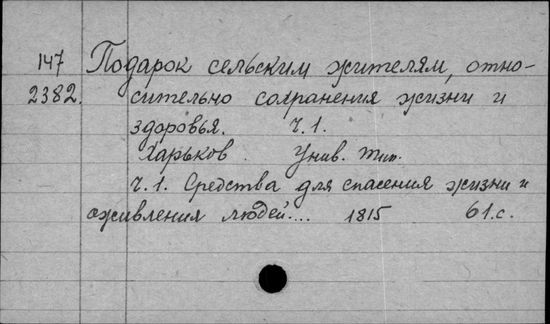 147 Подарок сельским жителям, отно-
2382. сительно сохранения жизни и
здоровья. Ч.1.
Харьков. Унив. тип.
Ч.1. Средства для спасения жизни и
оживления людей.... 1815 61.с.